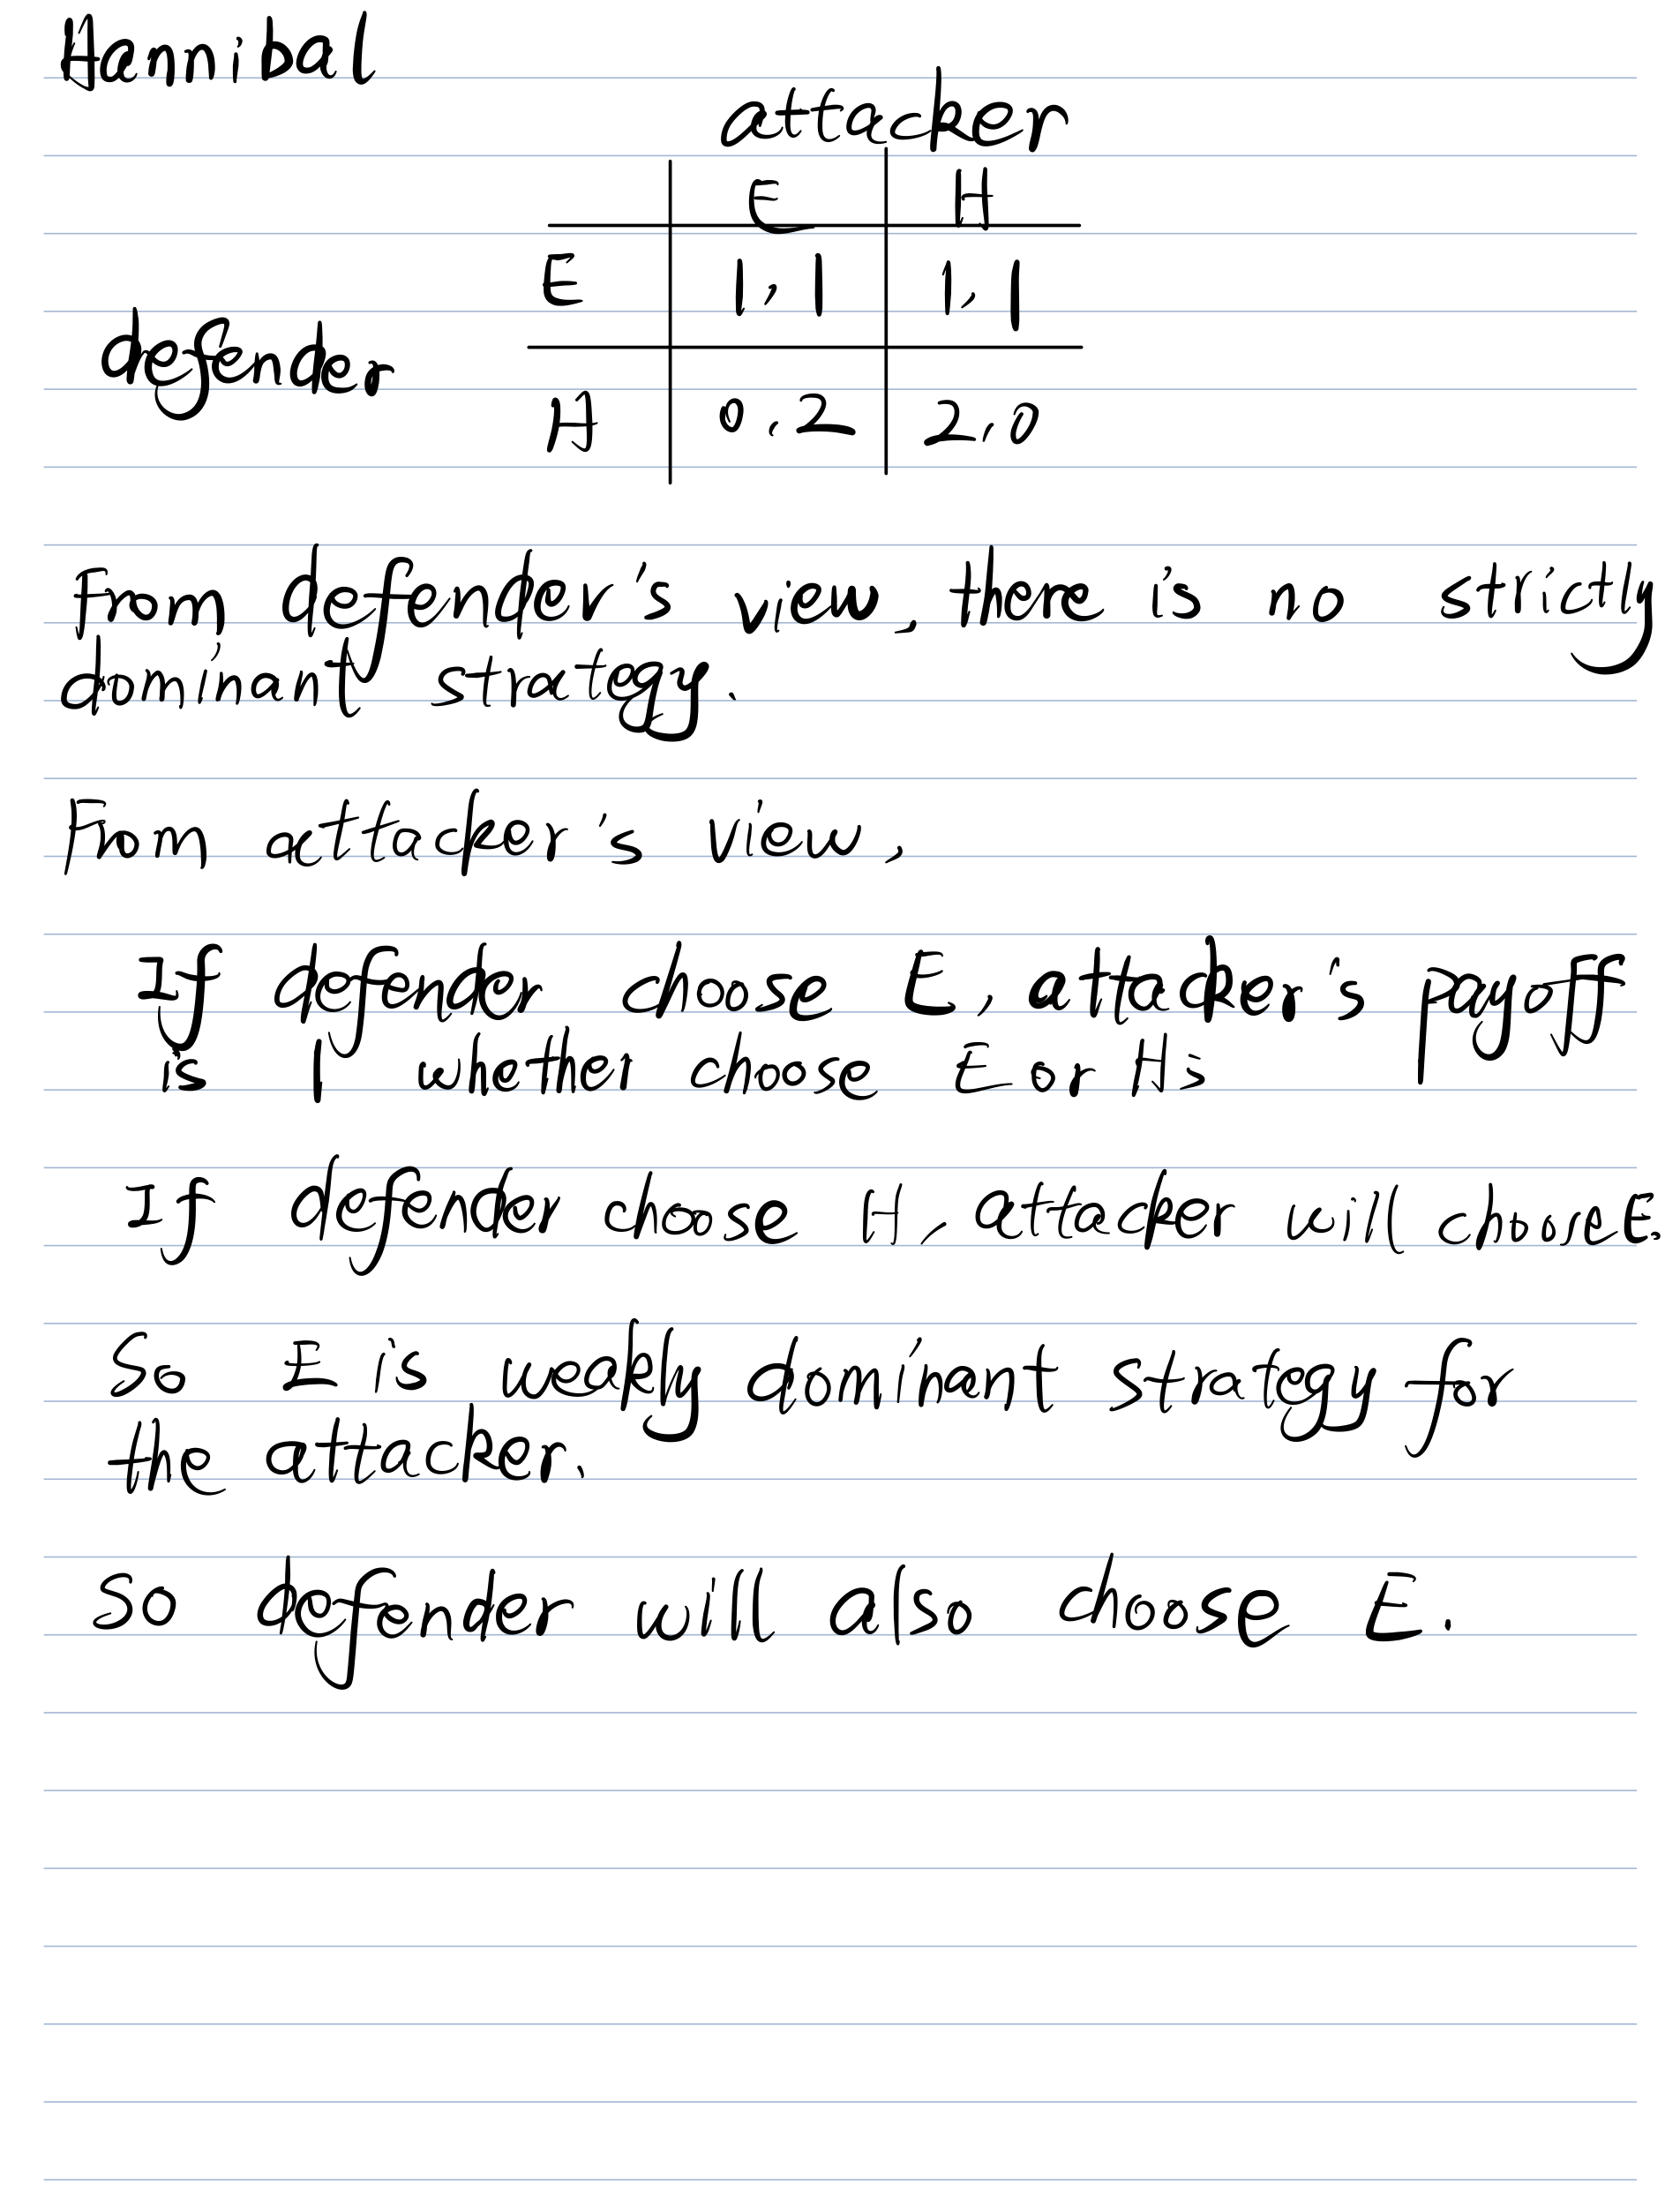 Hannibal
attacker
E H
E 1,1 1,1
defender
H 0,2 2,0
From defender's view, there is no strictly
dominant strategy.
From attacker's view,
If defender choose E, attacker's payoff
is 1 whether choose E or H;
If defender choose H, attacker will choose E.
So E is weakly dominant strategy for
the attacker.
So defender will also choose E.